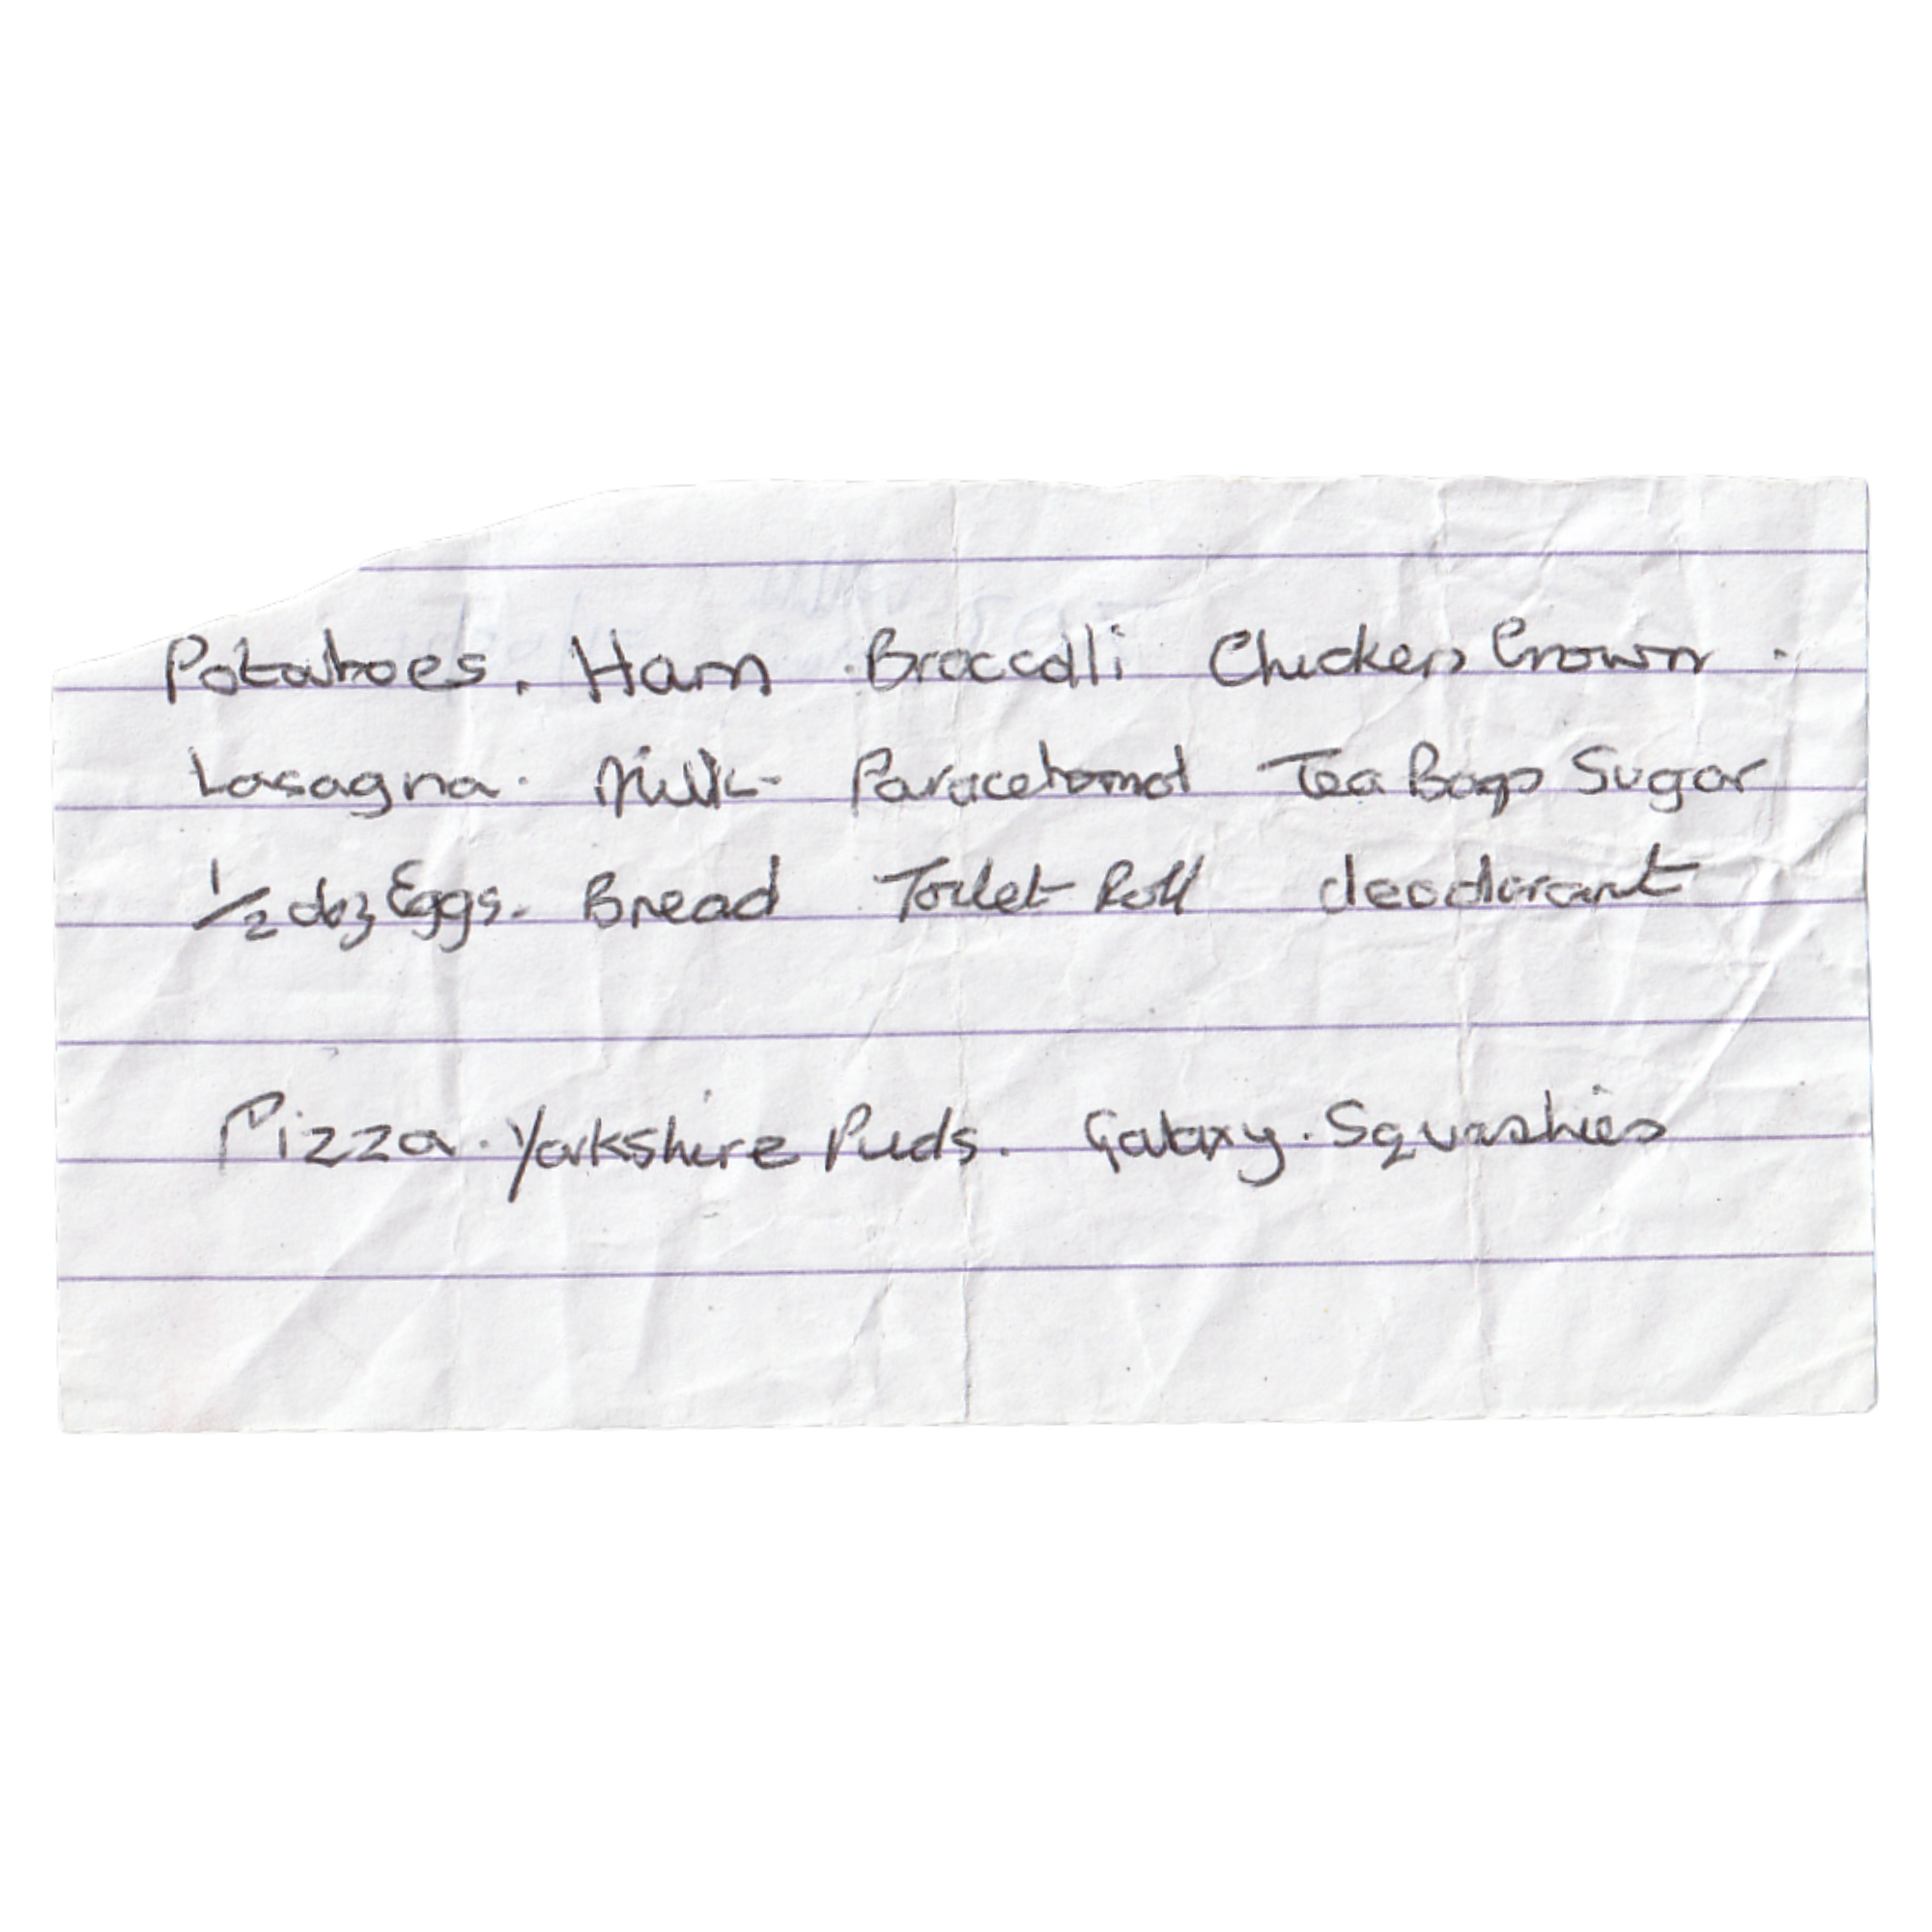 Potatoes. Ham .Broccolli Chicken Crown .
Lasagna. Milk- Paracetomol Tea Bags Sugar
1/2 doz Eggs. Bread Toilet Roll deodorant
Pizza. Yorkshire Puds. Galaxy. Squashies